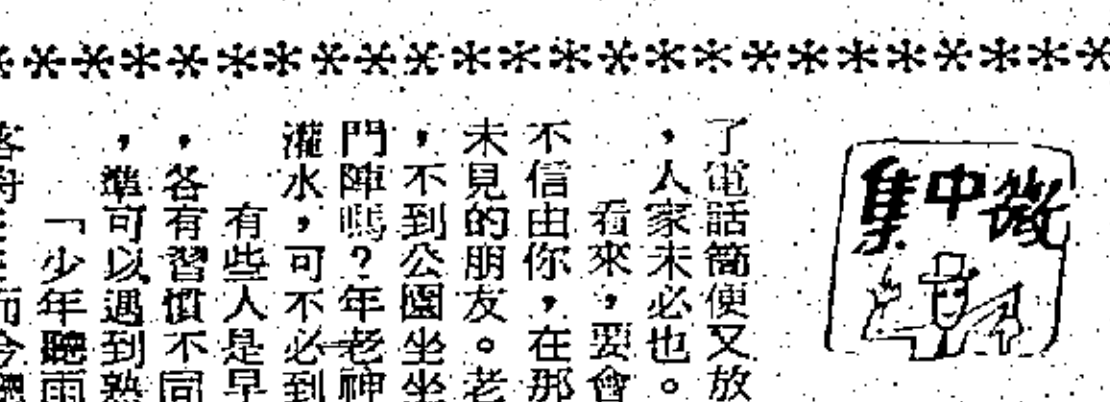 微中集
了電話簡便又放
，人家未必也。
看來，要會
不信由你，在那
未見的朋友。老
，不到公園坐坐
門陣嗎？年老神
灌水，可不必到
有些人是早
，各有習慣不同
，準可以遇到熟
「少年聽雨
而今